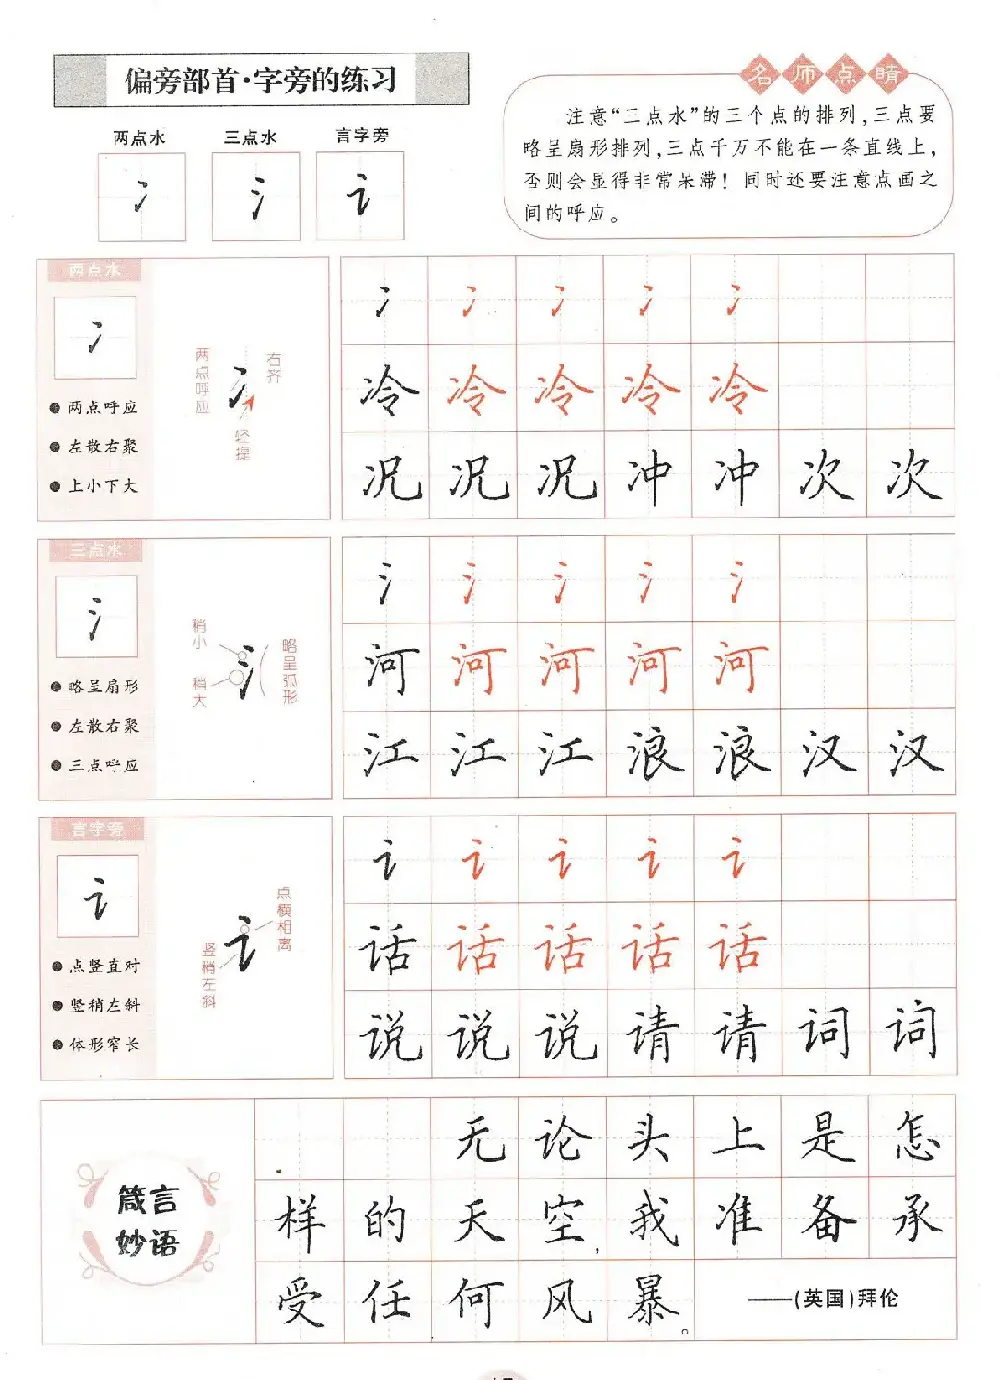 偏旁部首·字旁的练习
两点水 三点水 言字旁
冫 氵 讠
名师点睛
注意“三点水”的三个点的排列,三点要
略呈扇形排列,三点千万不能在一条直线上,
否则会显得非常呆滞!同时还要注意点画之
间的呼应。
两点水
冫
两点呼应
左散右聚
上小下大
两点呼应
右齐
轻提
冫 冫 冫 冫 冫
冷 冷 冷 冷 冷
况 况 况 冲 冲 次 次
三点水
氵
略呈扇形
左散右聚
三点呼应
稍小
稍大
略呈弧形
氵 氵 氵 氵 氵
河 河 河 河 河
江 江 江 浪 浪 汉 汉
言字旁
讠
点竖直对
竖稍左斜
体形窄长
点横相离
竖稍左斜
讠 讠 讠 讠 讠
话 话 话 话 话
说 说 说 请 请 词 词
箴言
妙语
无论头上是怎
样的天空,我准备承
受任何风暴。
——(英国)拜伦